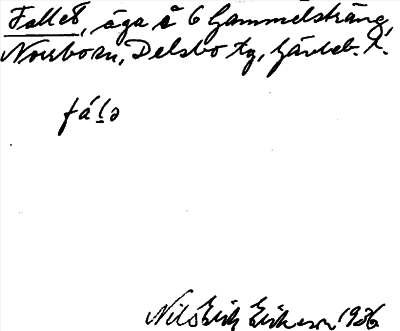 Fallet, äga å 6 Gammelsträng,
Norrbo sn, Delsbo tg, Gävleb. l.
fá̱lə
Nils Erik Eriksson 1936